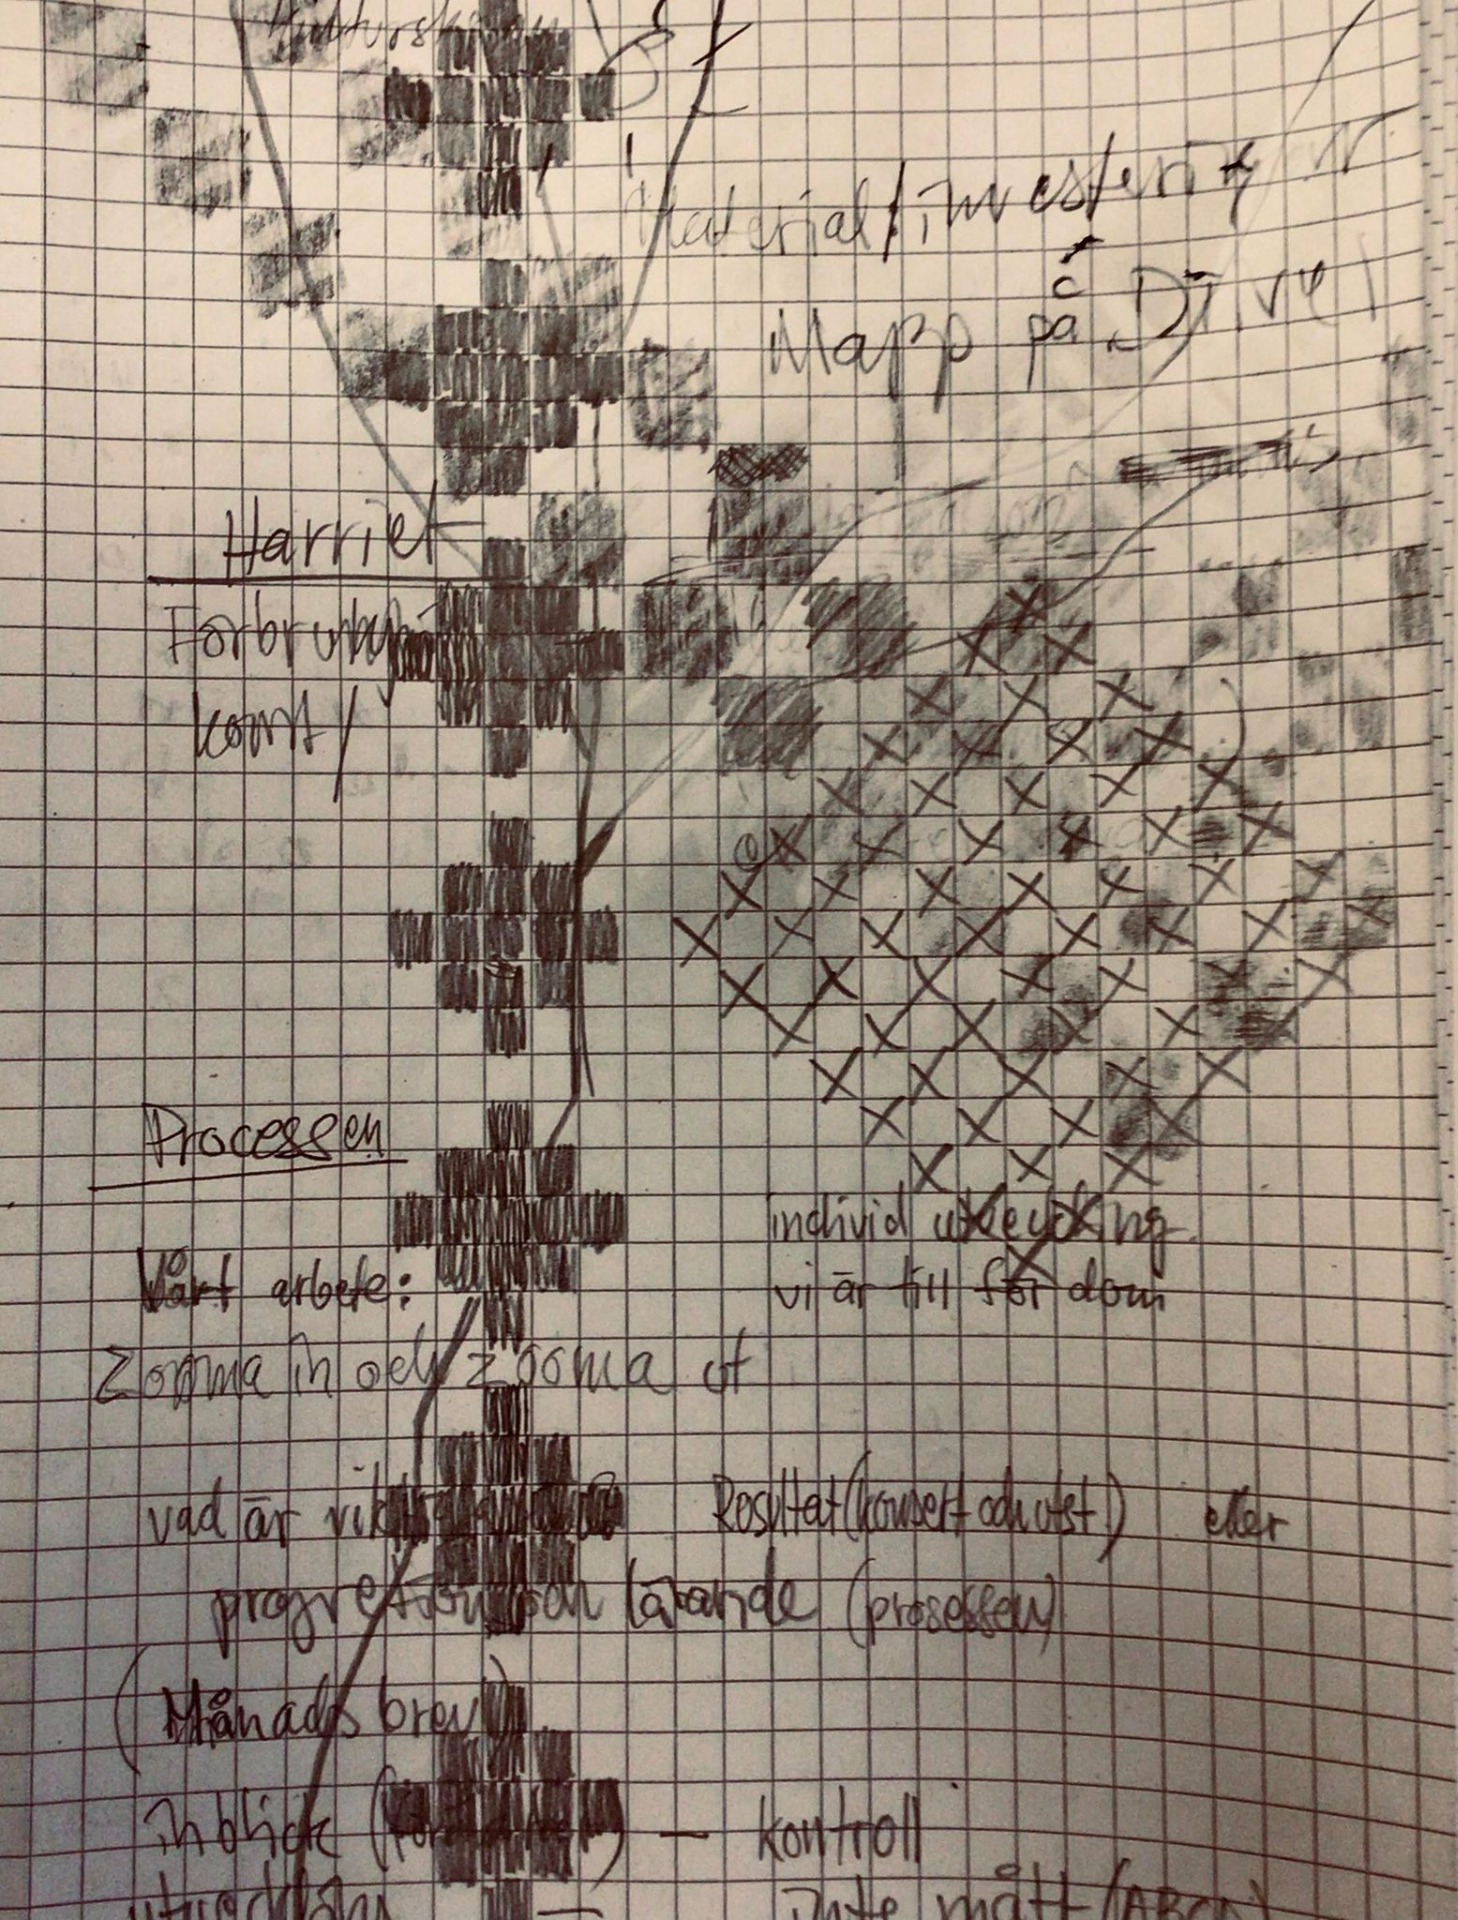 Kulturskolan
Material/investering
Mapp på Drive!
Harriet
Förbrukning
konst/
Processen
individ utveckling
Vårt arbete:
vi är till för dom
Zooma in och zooma ut
vad är Resultat (konsert och utst) eller
progression och lärande (prosessen)
(Månadsbrev)
inblick — kontroll
inte mått (ABCD)